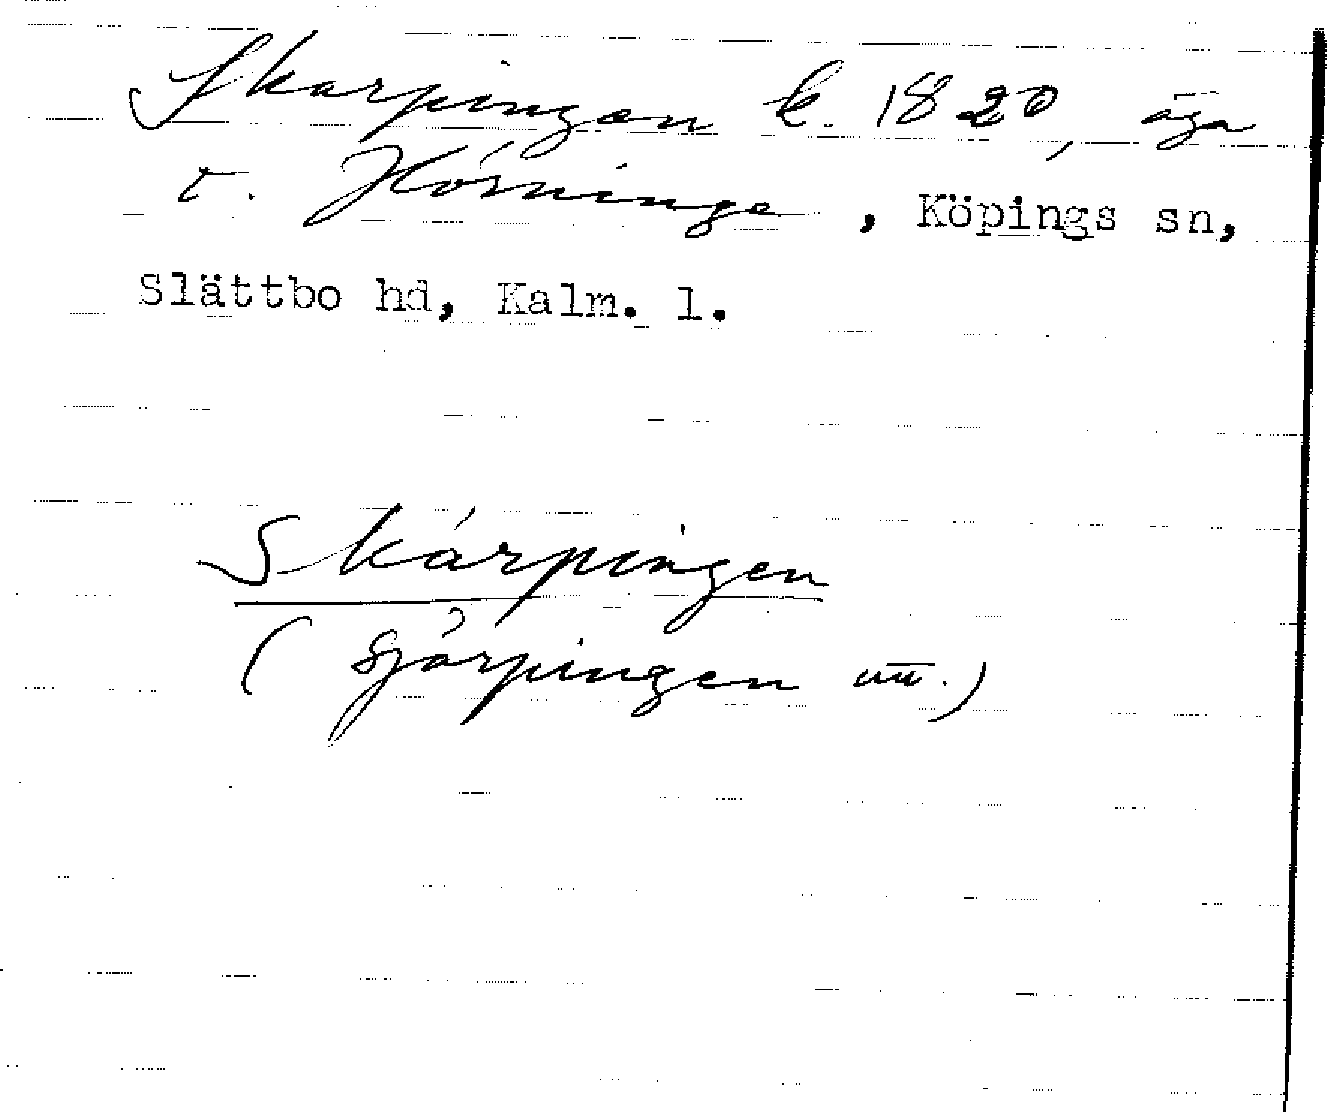 Skarpingen k. 1820, äga
t. Hörninge, Köpings sn,
Slättbo hd, Kalm. l.
Skärpingen
( Sjärpingen uu.)